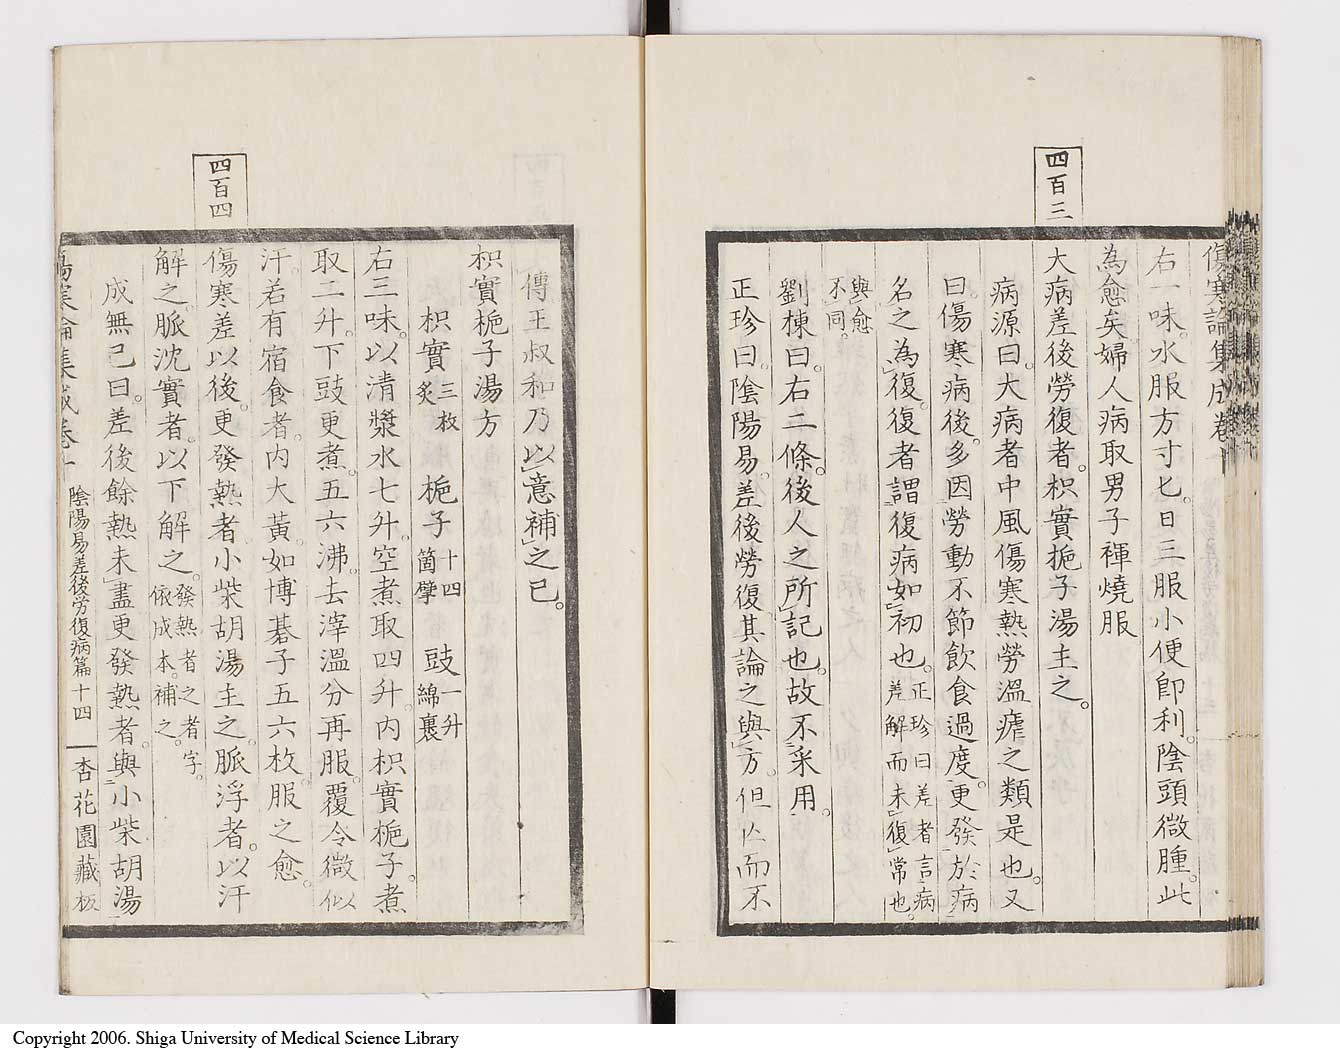 四百三
傷寒論集成卷十
右一味。水服方寸匕。日三服小便即利。陰頭微腫。此
為愈矣。婦人病取男子褌燒服
大病差後勞復者。枳實梔子湯主之。
病源曰。大病者中風傷寒熱勞溫瘧之類是也。又
曰。傷寒病後。多因勞動不節飲食過度。更發於病
名之為復。復者謂復病如初也。正珍曰差者言病
差解而未復常也。
與愈
不同。
劉棟曰。右二條。後人之所記也。故不采用。
正珍曰。陰陽易。差後勞復其論之與方。但亡而不
四百四
傳王叔和乃以意補之已。
枳實梔子湯方
枳實三枚炙 梔子十四箇擘 豉一升綿裹
右三味。以清漿水七升。空煮取四升。內枳實梔子。煮
取二升。下豉更煮。五六沸。去滓溫分再服。覆令微似
汗。若有宿食者。內大黃。如博碁子五六枚。服之愈。
傷寒差以後。更發熱者小柴胡湯主之。脈浮者。以汗
解之。脈沈實者。以下解之。發熱者之者字。
依成本。補之。
成無己曰。差後餘熱未盡更發熱者。與小柴胡湯
傷寒論集成卷十 陰陽易差後勞復病篇十四 杏花園藏板
Copyright 2006. Shiga University of Medical Science Library